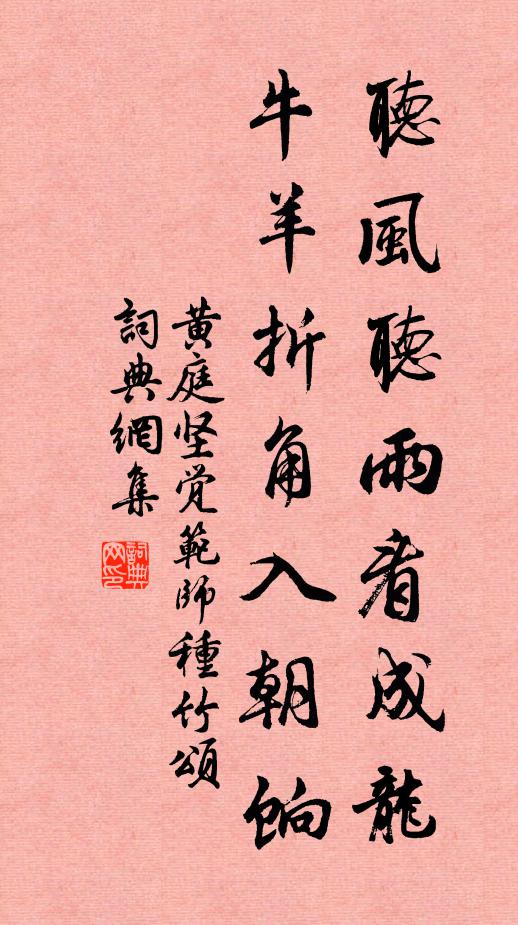 聽風聽雨看成龍
牛羊折角入朝餉
黄庭坚觉範師種竹頌
詞典網集
詞典
网印